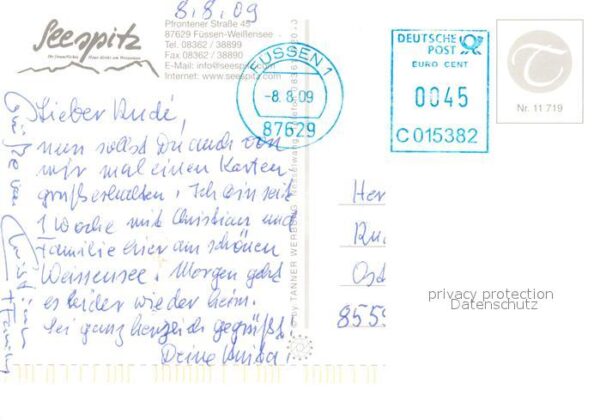 8.8.09
Seespitz
Pfrontener Straße 45
87629 Füssen-Weißensee
Tel. 08362 / 38899
Fax 08362 / 38890
E-Mail: info@seespitz.com
Internet: www.seespitz.com
FÜSSEN 1
-8.8.09
87629
DEUTSCHE
POST
EURO CENT
0045
C015382
Nr. 11 719
Lieber Rudi,
nun sollst Du auch von
mir mal einen Karten
gruß erhalten. Ich bin seit
1 Woche mit Christian und
Familie hier am schönen
Weissensee. Morgen geht
es leider wieder heim.
Sei ganz herzlich gegrüßt!
Deine
Grüße von
Christian
+ Family
by TANNER WERBUNG Nesselwang
Her
Ru
Ost
8555
privacy protection
Datenschutz